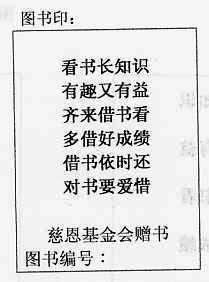 图书印：
看书长知识
有趣又有益
齐来借书看
多借好成绩
借书依时还
对书要爱惜
慈恩基金会赠书
图书编号：